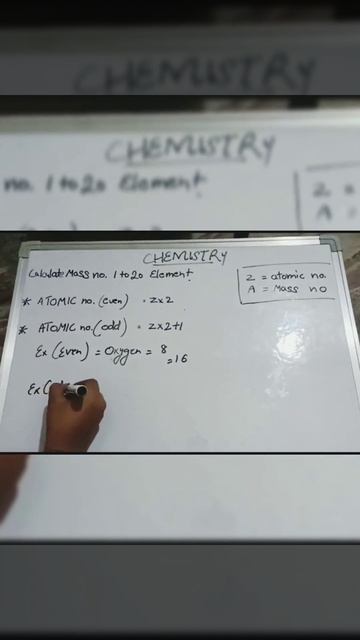 CHEMISTRY
CHEMISTRY
no. 1 to 20 Element
Z =
A =
CHEMISTRY
Calculate Mass no. 1 to 20 Element
Z = atomic no.
A = Mass no
* ATOMIC no. (even) = Z×2
* ATOMIC no. (odd) = Z×2+1
Ex (Even) = Oxygen = 8
=16
Ex (